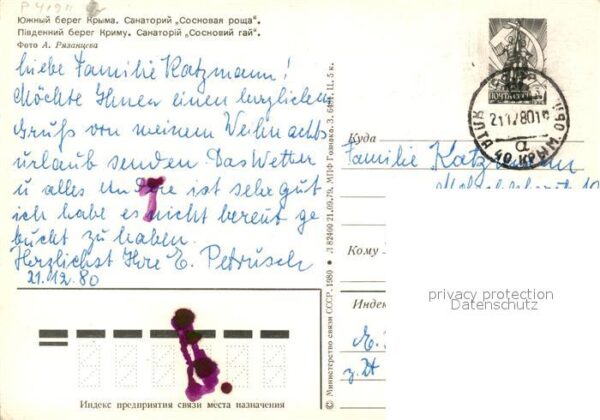 P4194
Южный берег Крыма. Санаторий „Сосновая роща“.
Південний берег Криму. Санаторій „Сосновий гай“.
Фото А. Рязанцева
Liebe Familie Katzmann!
Möchte Ihnen einen herzlichen
Gruß von meinem Weihnachts
urlaub senden Das Wetter
u alles andere ist sehr gut
ich habe es nicht bereut ge
bucht zu haben.
Herzlichst Ihre E. Petrusch
21.12.80
Индекс предприятия связи места назначения
© Министерство связи СССР. 1980 • Л 82400 21.09.79. МПФ Гознака. З. Ц. 5 к.
ПОЧТА СССР
211280
а
ЯЛТА КРЫМ ОБЛ
Куда
Familie Katzmann
10
Кому
Индекс
privacy protection
Datenschutz
z. Zt